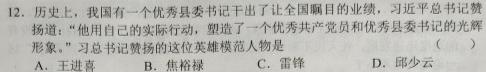 12. 历史上，我国有一个优秀县委书记干出了让全国瞩目的业绩，习近平总书记赞
扬道：“他用自己的实际行动，塑造了一个优秀共产党员和优秀县委书记的光辉
形象。”习总书记赞扬的这位英雄模范人物是 （ ）
A．王进喜 B．焦裕禄 C．雷锋 D．邱少云